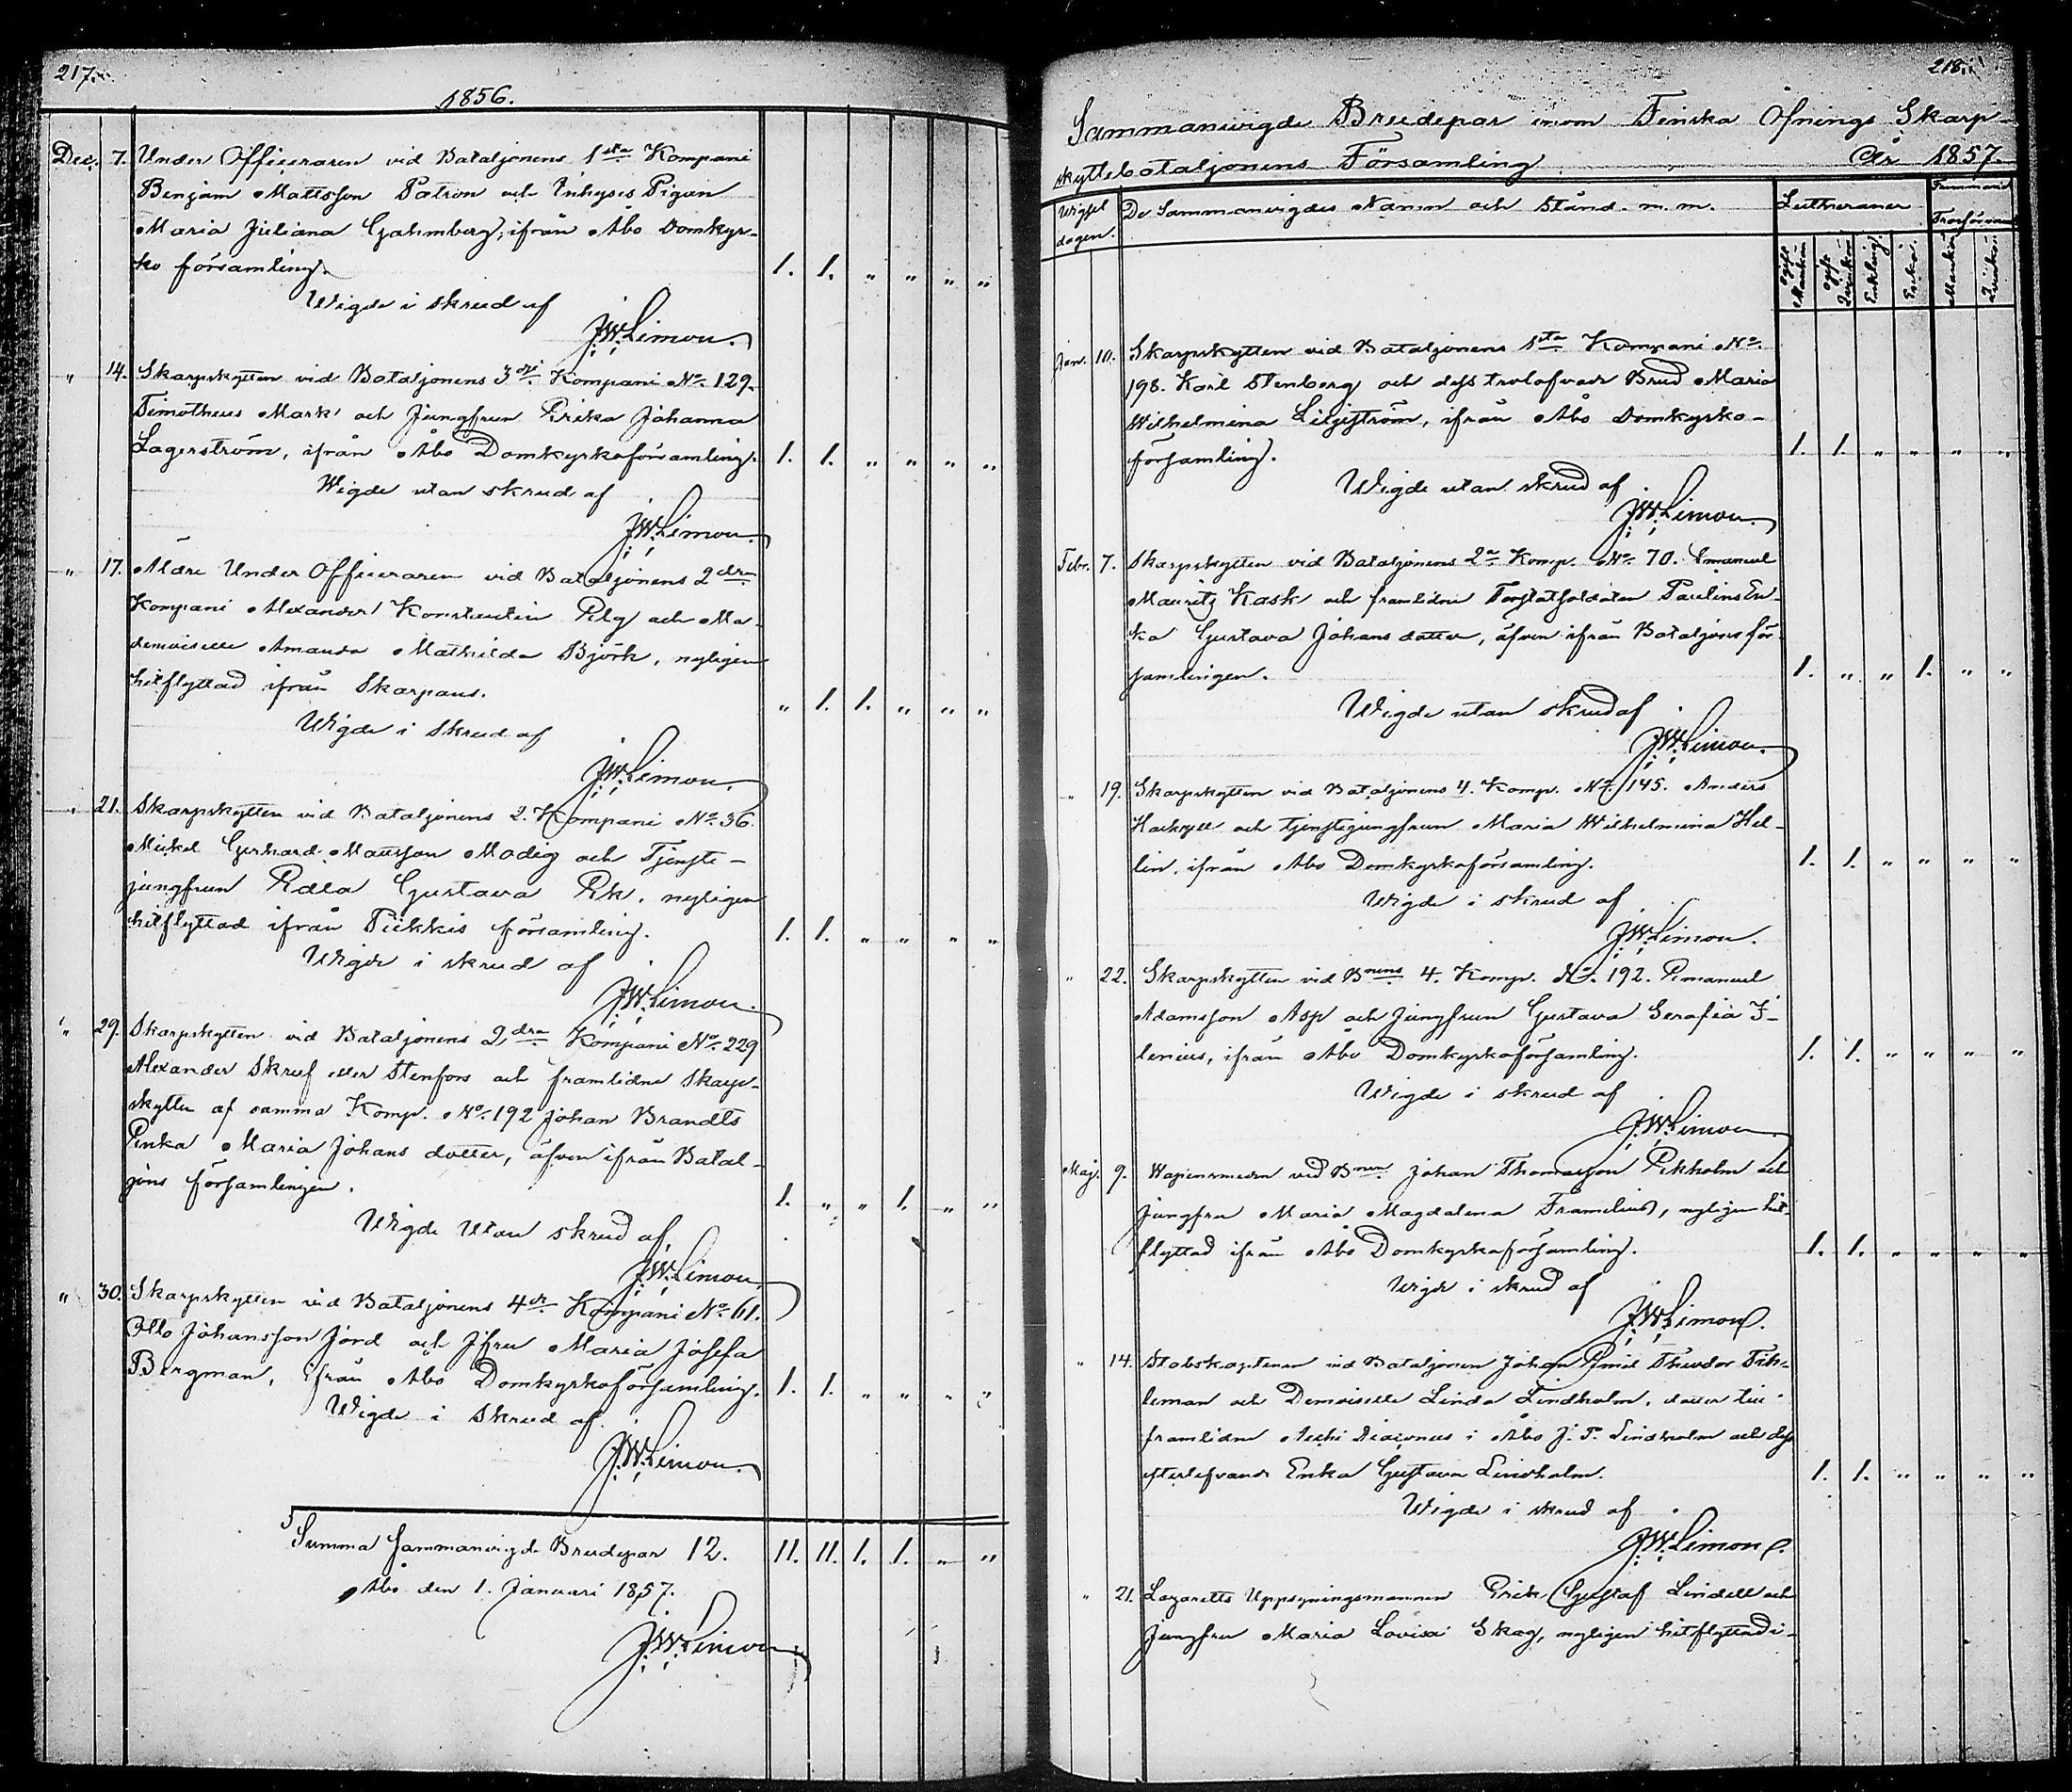 217.
1856.
Dec. 7. Under Officeraren vid Bataljonens 1sta Kompani
Benjam Mattsson Patron och Inhyses Pigan
Maria Juliana Gahmberg, ifrån Åbo Domkyr-
ko församling. 1. 1. " " " "
Wigde i skrud af
J.W. Limon.
" 14. Skarpskytten vid Bataljonens 3dri Kompani No. 129.
Timotheus Mark och Jungfrun Erika Johanna
Lagerström, ifrån Åbo Domkyrkoförsamling. 1. 1. " " " "
Wigde utan skrud af
J.W. Limon.
" 17. Äldre Under Officeraren vid Bataljonens 2dra
Kompani Alexander Konstantin Elg och Ma-
demoiselle Amanda Mathilda Björk, nyligen
hitflyttad ifrån Skarpans. " 1. 1. " " "
Wigde i Skrud af
J.W. Limon.
" 21. Skarpskytten vid Bataljonens 2. Kompani No. 36.
Mickel Gerhard Matsson Modig och Tjenste-
jungfrun Edla Gustava Ek, nyligen
hitflyttad ifrån Piikkis församling. 1. 1. " " " "
Wigde i skrud af
J.W. Limon.
" 29. Skarpskytten vid Bataljonens 2dra Kompani No. 229
Alexander Skruf eller Stenfors och framlidne Skarp-
skytten af samma Komp. No. 192 Johan Brandts
Enka Maria Johans dotter, äfven ifrån Batal-
jons församlingen. 1. " " 1. " "
Wigde Utan skrud af
J.W. Limon.
" 30. Skarpskytten vid Bataljonens 4de Kompani No. 61.
Otto Johansson Jord och Jfru Maria Josefa
Bergman, ifrån Åbo Domkyrkoförsamling. 1. 1. " " " "
Wigde i Skrud af
J.W. Limon.
Summa Sammanvigde Brudepar 12. 11. 11. 1. 1. " "
Åbo den 1. Januari 1857.
J.W. Limon
218.
Sammanvigde Brudepar inom Finska Öfnings Skarp-
skyttebataljonens Församling År 1857.
Wigsel dagen. De Sammanvigdes Namn och Stånd. m.m. Lutheraner Främmande Trosförvandt
ogift Mankön ogift Qvinkön Enkling Enka Mankön Qvinkön
Jan. 10. Skarpskytten vid Bataljonens 1sta Kompani No.
198. Karl Stenberg och dess trolofvade Brud Maria
Wilhelmina Liljeström, ifrån Åbo Domkyrko-
församling. 1. 1. " " " "
Wigde utan skrud af
J.W. Limon.
Febr. 7. Skarpskytten vid Bataljonens 2a Komp. No. 70. Emanuel
Mauritz Kask och framlidne Paulins En-
ka Gustava Johans dotter, äfven ifrån Bataljons för-
samlingen. 1. " " 1. " "
Wigde utan skrud af
J.W. Limon.
" 19. Skarpskytten vid Bataljonens 4. Komp. No. 145. Anders
och tjenstejungfrun Maria Wilhelmina Hel-
lin, ifrån Åbo Domkyrkoförsamling. 1. 1. " " " "
Wigde i skrud af
J.W. Limon.
" 22. Skarpskytten vid Bnens 4. Komp. No. 192. Emanuel
Adamsson Asp och Jungfrun Gustava Serafia I-
lenius, ifrån Åbo Domkyrkoförsamling. 1. 1. " " " "
Wigde i skrud af
J.W. Limon
Maj. 9. Wapensmeden vid Bnen Johan Thomasson Ekholm och
Jungfru Maria Magdalena Framelius, nyligen hit-
flyttad ifrån Åbo Domkyrkoförsamling. 1. 1. " " " "
Wigde i skrud af
J.W. Limon.
" 14. Stabskaptenen vid Bataljonen Johan Emil Theodor Tih-
leman och Demoiselle Linda Lindholm, dotter till
framlidne Archi Diaconus i Åbo J. P. Lindholm och dess
efterlefvande Enka Gustava Lindholm. 1. 1. " " " "
Wigde i skrud af
J.W. Limon.
" 21. Lazaretts Uppsyningsmannen Erik Gustaf Lindell och
Jungfru Maria Lovisa Skog, nyligen hitflyttad i-